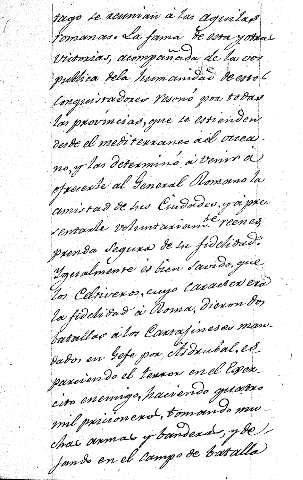 tago se reunian a las aguilas
romanas. La fama de esta y otras
victorias, acompañada de la voz
publica dela humanidad de estos
conquistadores resonó por todas
las provincias, que se estienden
desde el mediterraneo al occea
no, y las determinó a venir à
ofrecerle al General Romano la
amistad de sus Ciudades, y a pre
sentarle voluntariamte reenes,
prenda segura de su fidelidad.
Igualmente es bien savido, que
los Celtiveros, cuyo caracter era
la fidelidad à Roma, dieron dos
batallas à los Cartajineses man
dados en Gefe por Asdrubal, es
parciendo el terror en el Exer
cito enemigo, haciendo quatro
mil pricioneros, tomando mu
chas armas y banderas, y de
jando en el campo de batalla